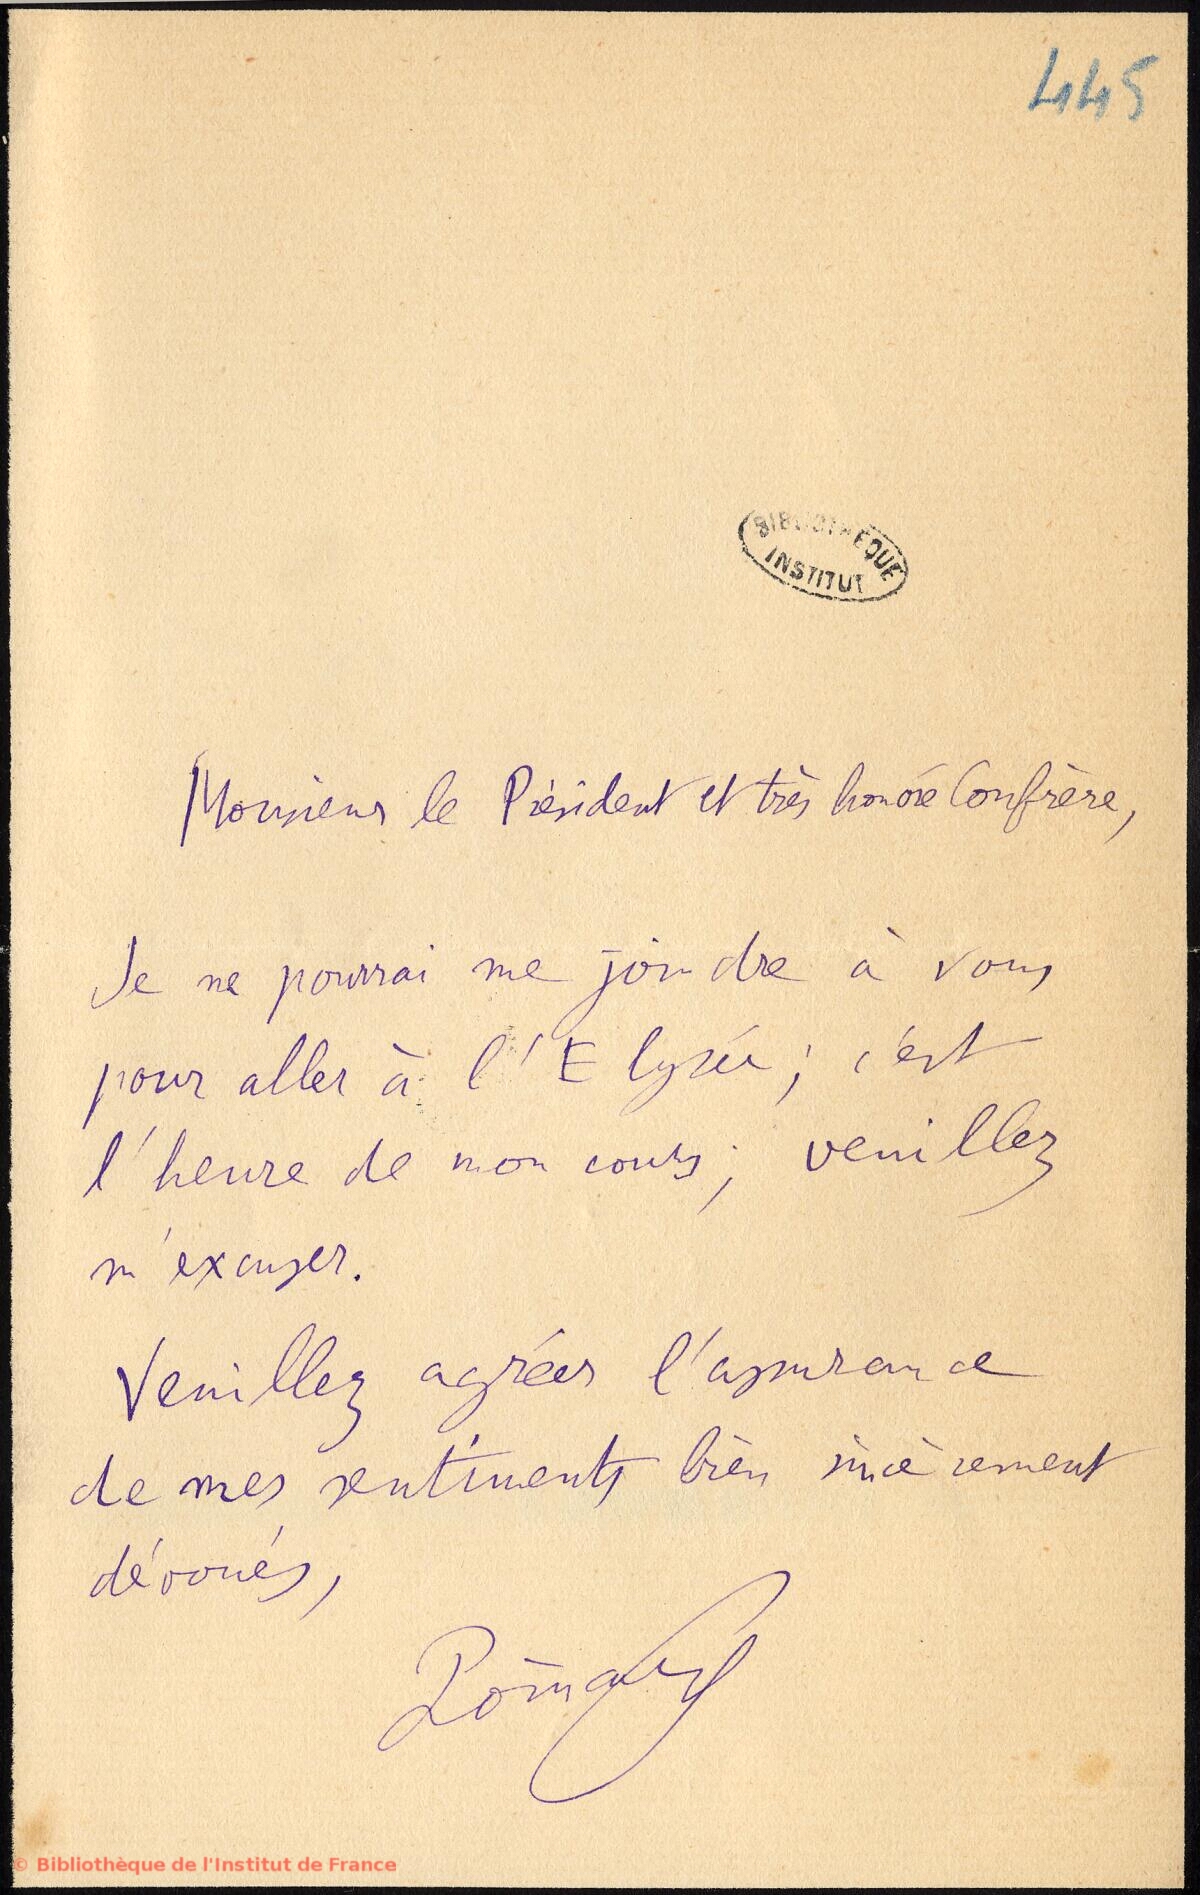 445
BIBLIOTHÈQUE
INSTITUT
Monsieur le Président et très honoré Confrère,
Je ne pourrai me joindre à vous
pour aller à l'Elysée; c'est
l'heure de mon cours; veuillez
m'excuser.
Veuillez agréer l'assurance
de mes sentiments bien sincèrement
dévoués,
Poincaré
© Bibliothèque de l'Institut de France